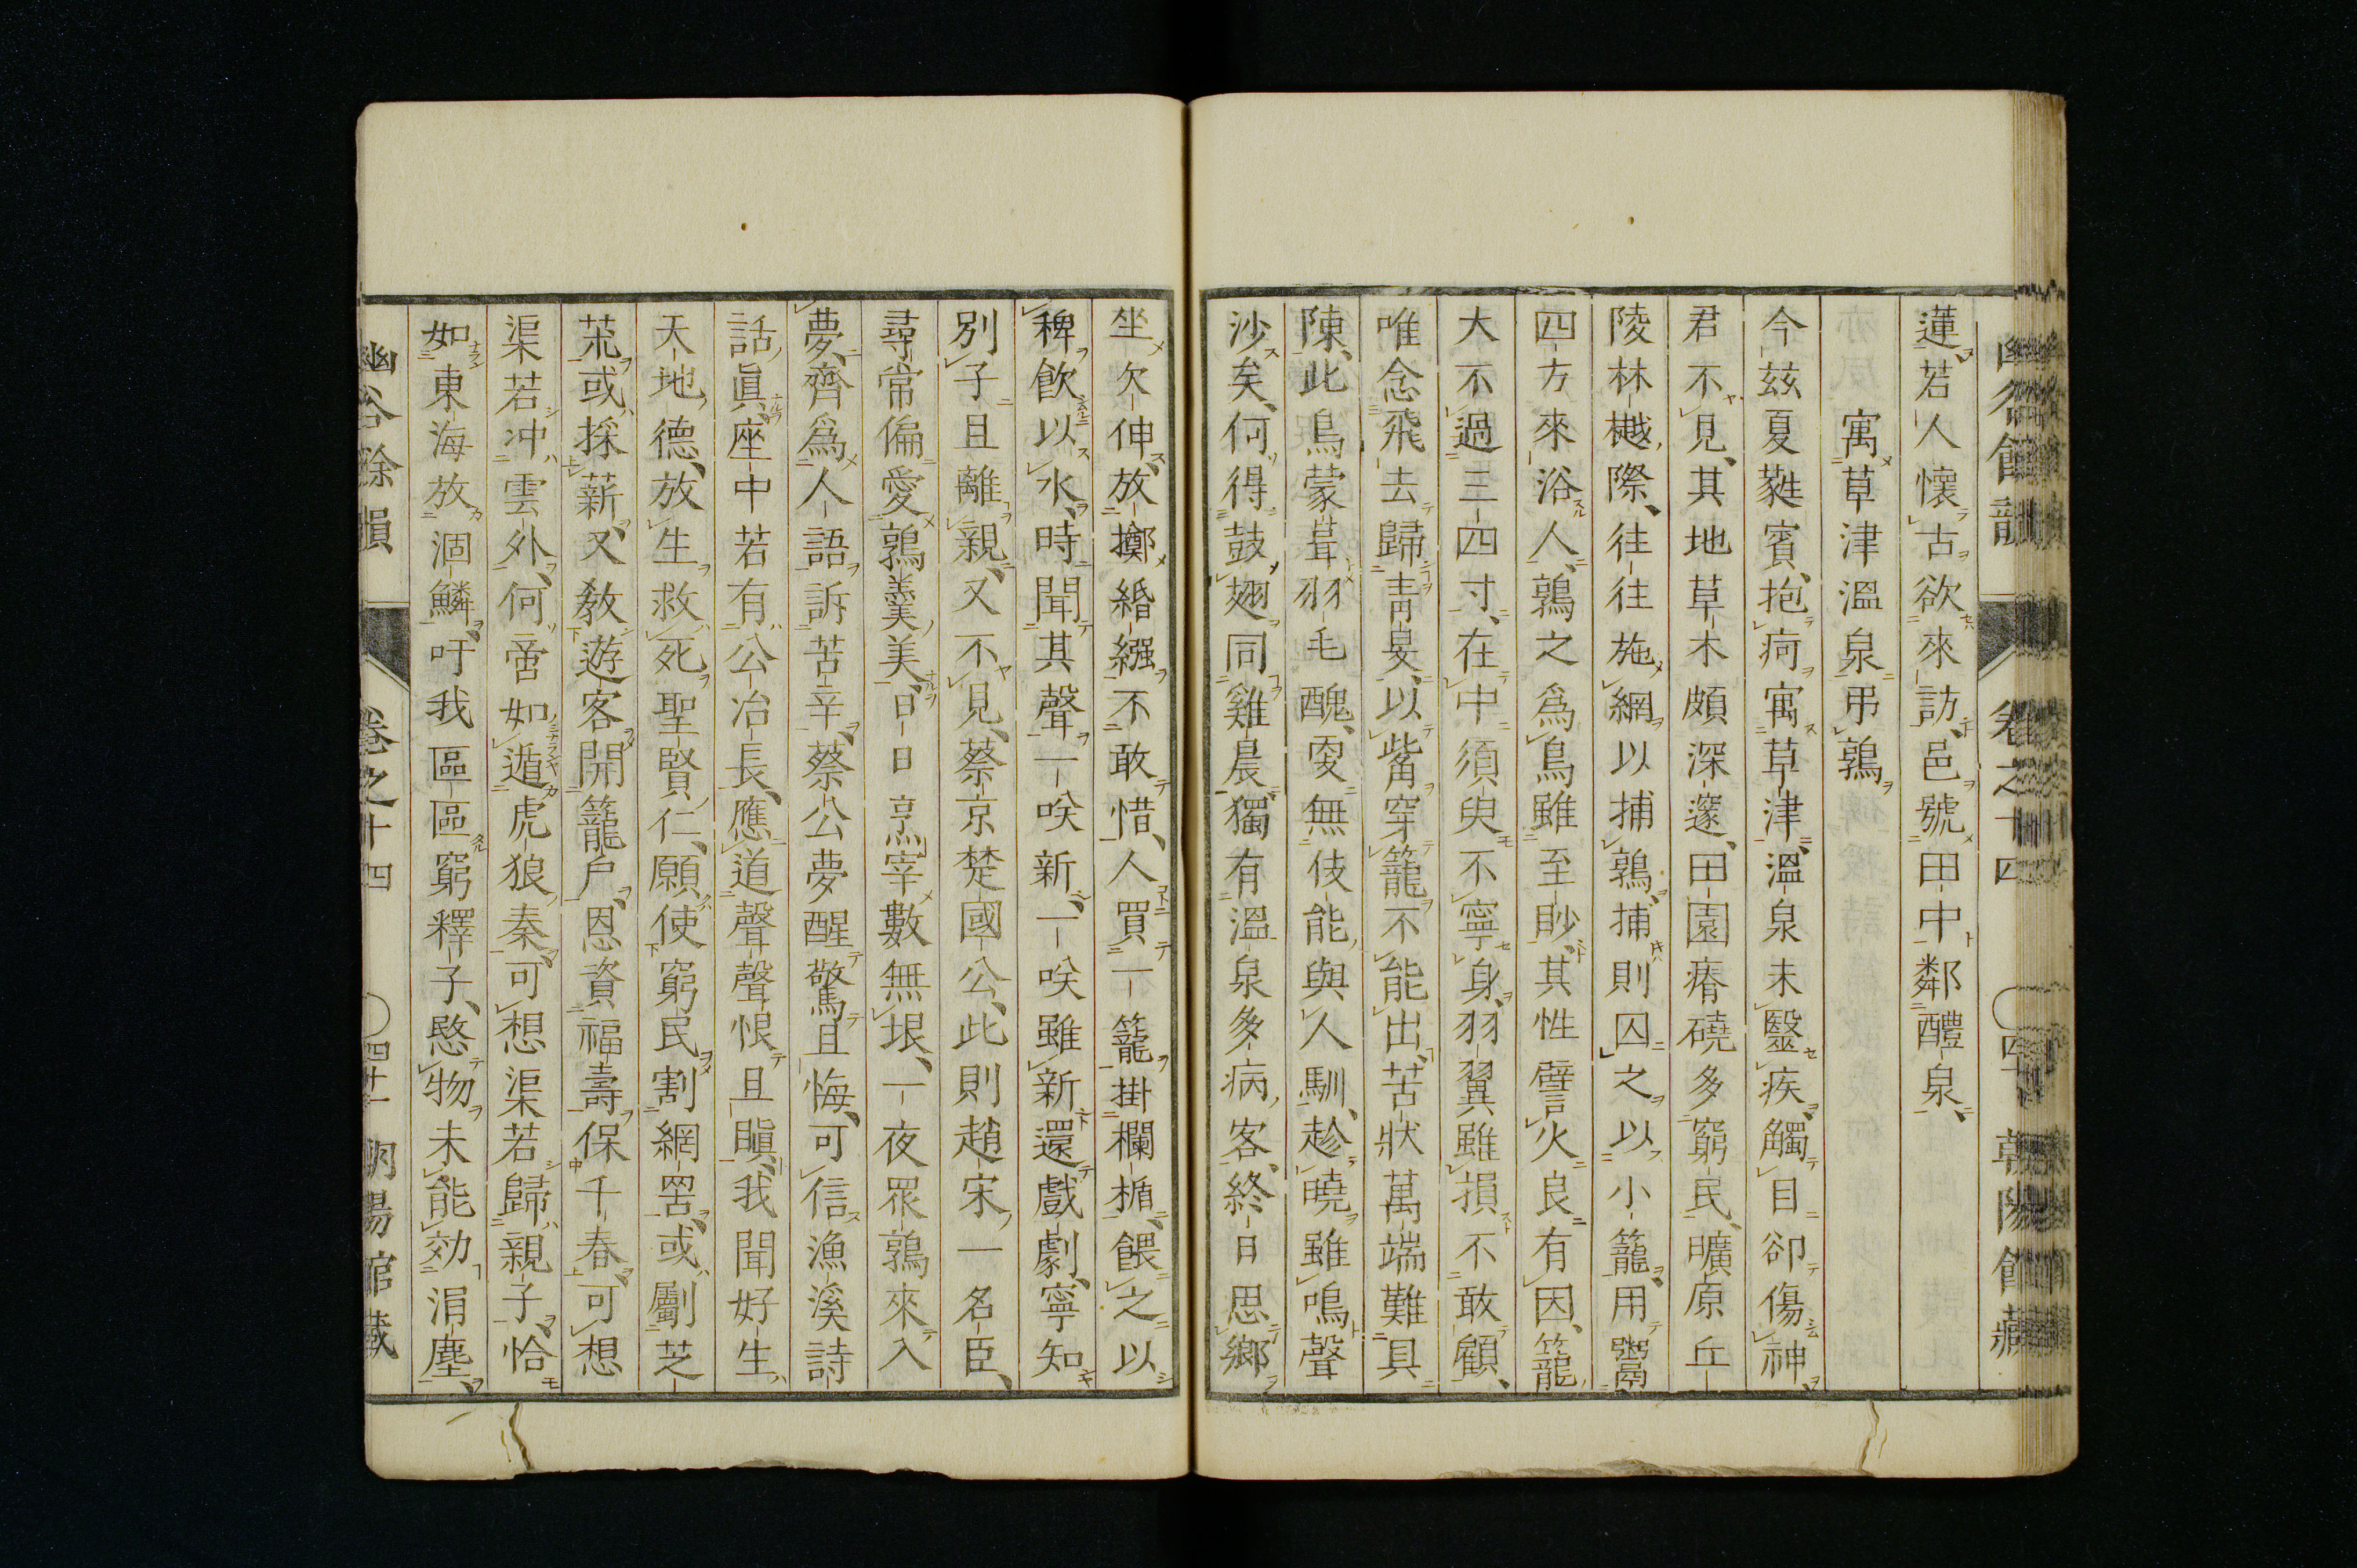 幽谷餘韻 卷之十四 ○四十 朝陽館藏
蓮若人懷古欲來訪邑號田中鄰醴泉
寓草津溫泉弔鶉
今玆夏蕤賓抱疴寓草津溫泉未毉疾觸目卻傷神
君不見其地草木頗深邃田園瘠磽多窮民曠原丘
陵林樾際往往施網以捕鶉捕則囚之以小籠用鬻
四方來浴人鶉之爲鳥雖至眇其性譬火良有因籠
大不過三四寸在中須臾不寧身羽翼雖損不敢顧
唯念飛去歸靑旻以觜穿籠不能出苦狀萬端難具
陳此鳥蒙茸羽毛醜更無伎能與人馴趁曉雖鳴聲
沙矣何得鼓翅同雞晨獨有溫泉多病客終日思鄉
坐欠伸放擲緡繦不敢惜人買一籠掛欄楯餵之以
稗飮以水時聞其聲一唉新一唉雖新還戲劇寧知
別子且離親又不見蔡京楚國公此則趙宋一名臣
尋常偏愛鶉羹美日日烹宰數無垠一夜衆鶉來入
夢齊爲人語訴苦辛蔡公夢醒驚且悔可信漁溪詩
話眞座中若有公冶長應道聲聲恨且瞋我聞好生
天地德放生救死聖賢仁願使窮民割網罟或斸芝
茋或採薪又教遊客開籠戶恩資福壽保千春可想
渠若冲雲外何啻如遁虎狼秦可想渠若歸親子恰
如東海放涸鱗吁我區區窮釋子愍物未能効涓塵
幽谷餘韻 卷之十四 ○四十一 朝陽館藏